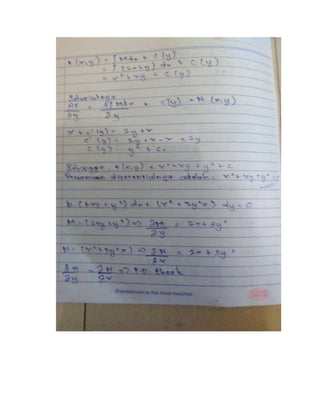 f(x,y) = ∫Mdx + C(y)
= ∫(2x+y) dx + C(y)
= x² + xy + C(y)
Selanjutnya
∂f/∂y = ∂∫Mdx/∂y + C'(y) = N(x,y)
x + c'(y) = 2y + x
c'(y) = 2y + x - x = 2y
C(y) = y² + C₁
Sehingga f(x,y) = x² + xy + y² + c
Persamaan diferensialnya adalah = x² + xy + y² = c
b. (2xy + y³) dx + (x² + 3y²x) dy = 0
M = (2xy + y³) => ∂M/∂y = 2x + 3y²
N = (x² + 3y²x) => ∂N/∂x = 2x + 3y²
∂M/∂y = ∂N/∂x => P.D Eksak
Experience is the best teacher